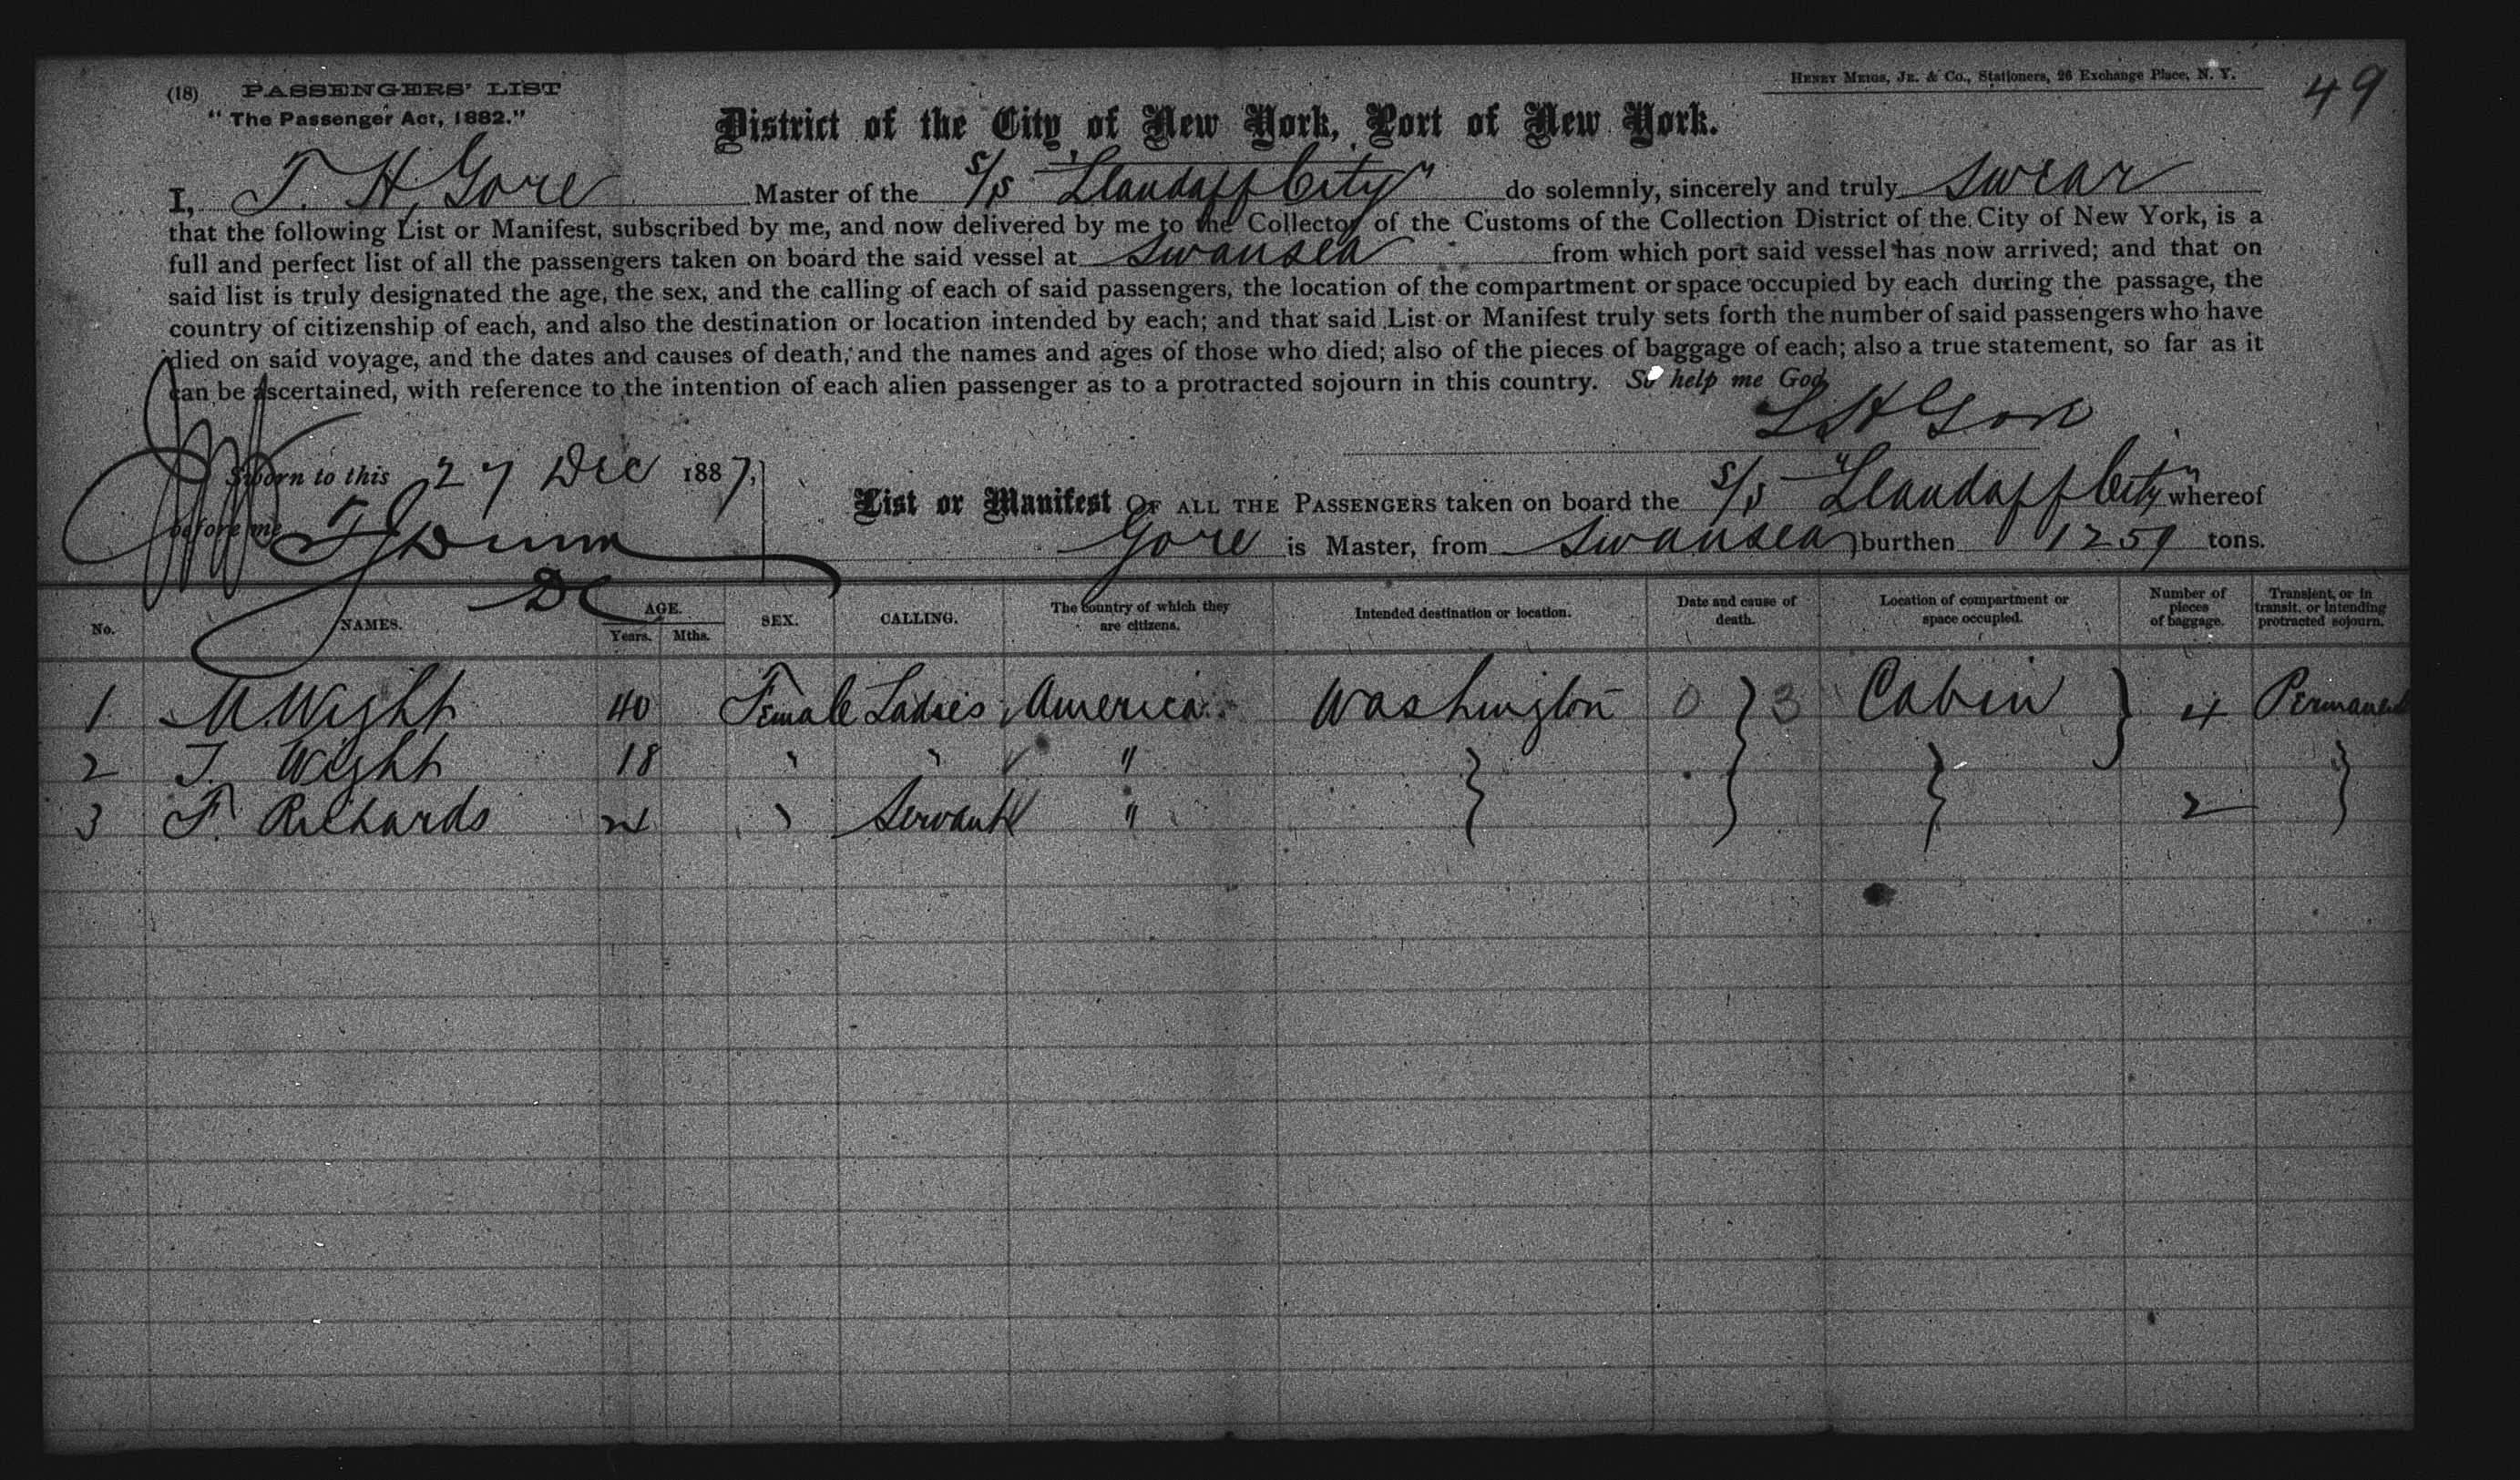 (18) PASSENGERS' LIST
"The Passenger Act, 1882."
HENRY MEIGS, JR. & CO., Stationers, 26 Exchange Place, N. Y.
49
District of the City of New York, Port of New York.
I, T. H. Gore Master of the S/S "Llandaff City" do solemnly, sincerely and truly swear
that the following List or Manifest, subscribed by me, and now delivered by me to the Collector of the Customs of the Collection District of the City of New York, is a
full and perfect list of all the passengers taken on board the said vessel at Swansea from which port said vessel has now arrived; and that on
said list is truly designated the age, the sex, and the calling of each of said passengers, the location of the compartment or space occupied by each during the passage, the
country of citizenship of each, and also the destination or location intended by each; and that said List or Manifest truly sets forth the number of said passengers who have
died on said voyage, and the dates and causes of death, and the names and ages of those who died; also of the pieces of baggage of each; also a true statement, so far as it
can be ascertained, with reference to the intention of each alien passenger as to a protracted sojourn in this country. So help me God
T H Gore
Sworn to this 27 Dec 1887,
before me
List or Manifest OF ALL THE PASSENGERS taken on board the S/S "Llandaff City" whereof
Gore is Master, from Swansea burthen 1259 tons.
No. NAMES. AGE. Years. Mths. SEX. CALLING. The country of which they are citizens. Intended destination or location. Date and cause of death. Location of compartment or space occupied. Number of pieces of baggage. Transient, or in transit, or intending protracted sojourn.
1 M. Wight 40 Female Ladies America Washington 0 } 3 Cabin } 4 Permanent
2 T. Wight 18 " " " } } }
3 F. Richards 21 " Servant " 2